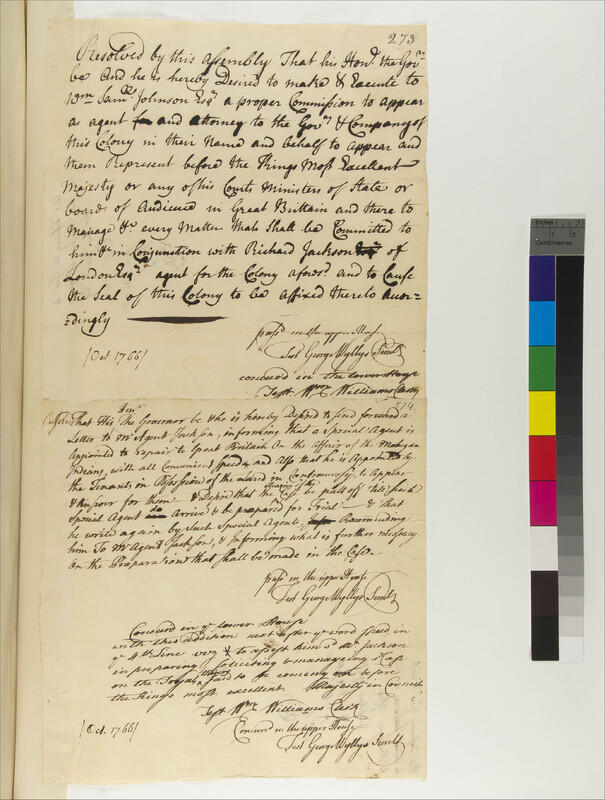 273
Resolved by this Assembly That his Honr. the Govr.
be And he is hereby Desired to make & Execute to
Wm. Saml. Johnson Esqr. a proper Commission to appear
as agent and attorney to the Govr. & Company of
this Colony in their Name and behalf to appear and
them Represent before the Kings Most Excellent
Majesty or any of his Courts Ministers of State or
boards of Audience in Great Brittain and there to
Manage &c every Matter that Shall be Committed to
him &c in Conjunction with Richard Jackson of
London Esqr. agent for the Colony aforesd. and to Cause
the Seal of this Colony to be affixed thereto accor-
-dingly
pass'd in the upper House
Test George Wyllys Secret
[Oct 1766]
concurd in the lower House
Test Wm. Williams Clerk
274
Resolved That His Honr The Governor be & he is hereby Desired to send forward a
Letter to Mr Agent Jackson, informing that a Special Agent is
Appointed to repair to Great Britain On the affair of the Mohegan
Indians, with all Convenient Speed & and Also that he is Appointed by
the Tenants in Possession of the Lands in Controversy to Appear
& Answer for them & Desire that the hearing of the Case be putt off till Such
Special Agent do Arrive & be prepared for Trial & that
he write again by Such Special Agent, Recommending
him To Mr Agent Jackson, & informing what is further necessary
On the Preparation that shall be made in the Case
pass'd in the upper House
Test George Wyllys Secret
Concurd in ye lower House
with this addition next after ye word Speed in
ye 4th Line to assist him sd Mr Jackson
in preparing Soliciting & manageing sd Case
on the Tryal thereof said to be coming on before
the Kings most excellent Majesty in Council
Test Wm Williams Clerk
[Oct. 1766]
Concurd in the upper House
Test George Wyllys Secret
Inches
1
2
Centimetres